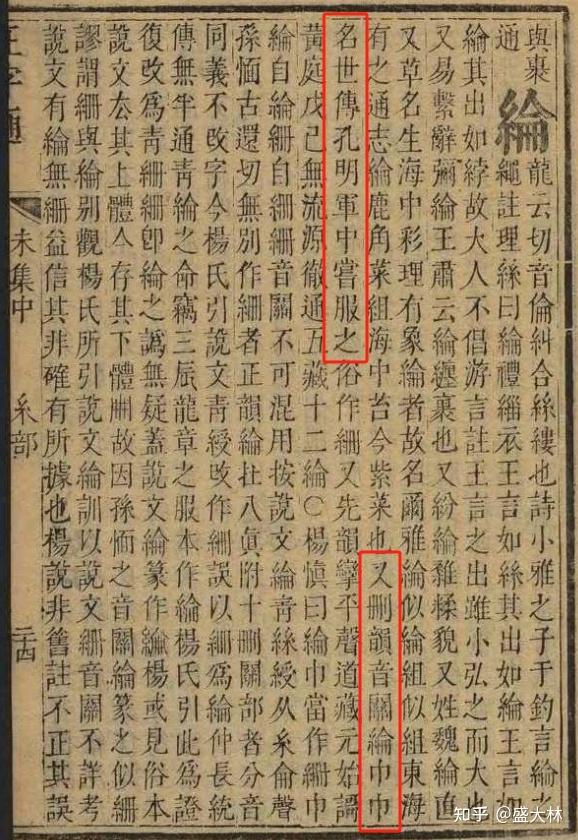 與裹
綸
龍云切音倫糾合絲縷也詩小雅之子于釣言綸
通
繩註理絲曰綸禮緇衣王言如絲其出如綸王言如
綸其出如綍故大人不倡游言註王言之出雖小弘之而大也
又易繫辭彌綸王肅云綸纏裹也又紛綸雜糅貌又姓魏綸直
又草名生海中彩理有象綸者故名爾雅綸似綸組似組東海
有之通志綸鹿角菜組海中苔今紫菜也又刪韻音關綸巾巾
名世傳孔明軍中嘗服之俗作又先韻攣平聲道藏元始謌
黃庭戊己無流源徹通五藏十二綸○楊慎曰綸巾當作巾
綸自綸自音關不可混用按說文綸青絲綬从糸侖聲
孫愐古還切無別作者正韻綸在八眞附十刪關部者分音
同義不改字今楊氏引說文青綬改作誤以爲綸仲長統
傳無半通青綸之命竊三辰龍章之服本作綸楊氏引此爲證
復改爲青卽綸之譌無疑蓋說文綸篆作楊或見俗本
說文去其上體亼存其下體冊故因孫愐之音關綸篆之似
謬謂與綸別觀楊氏所引說文綸訓以說文音關不詳考
說文有綸無益信其非確有所據也楊說非舊註不正其誤
正字通
未集中
糸部
知乎 @盛大林